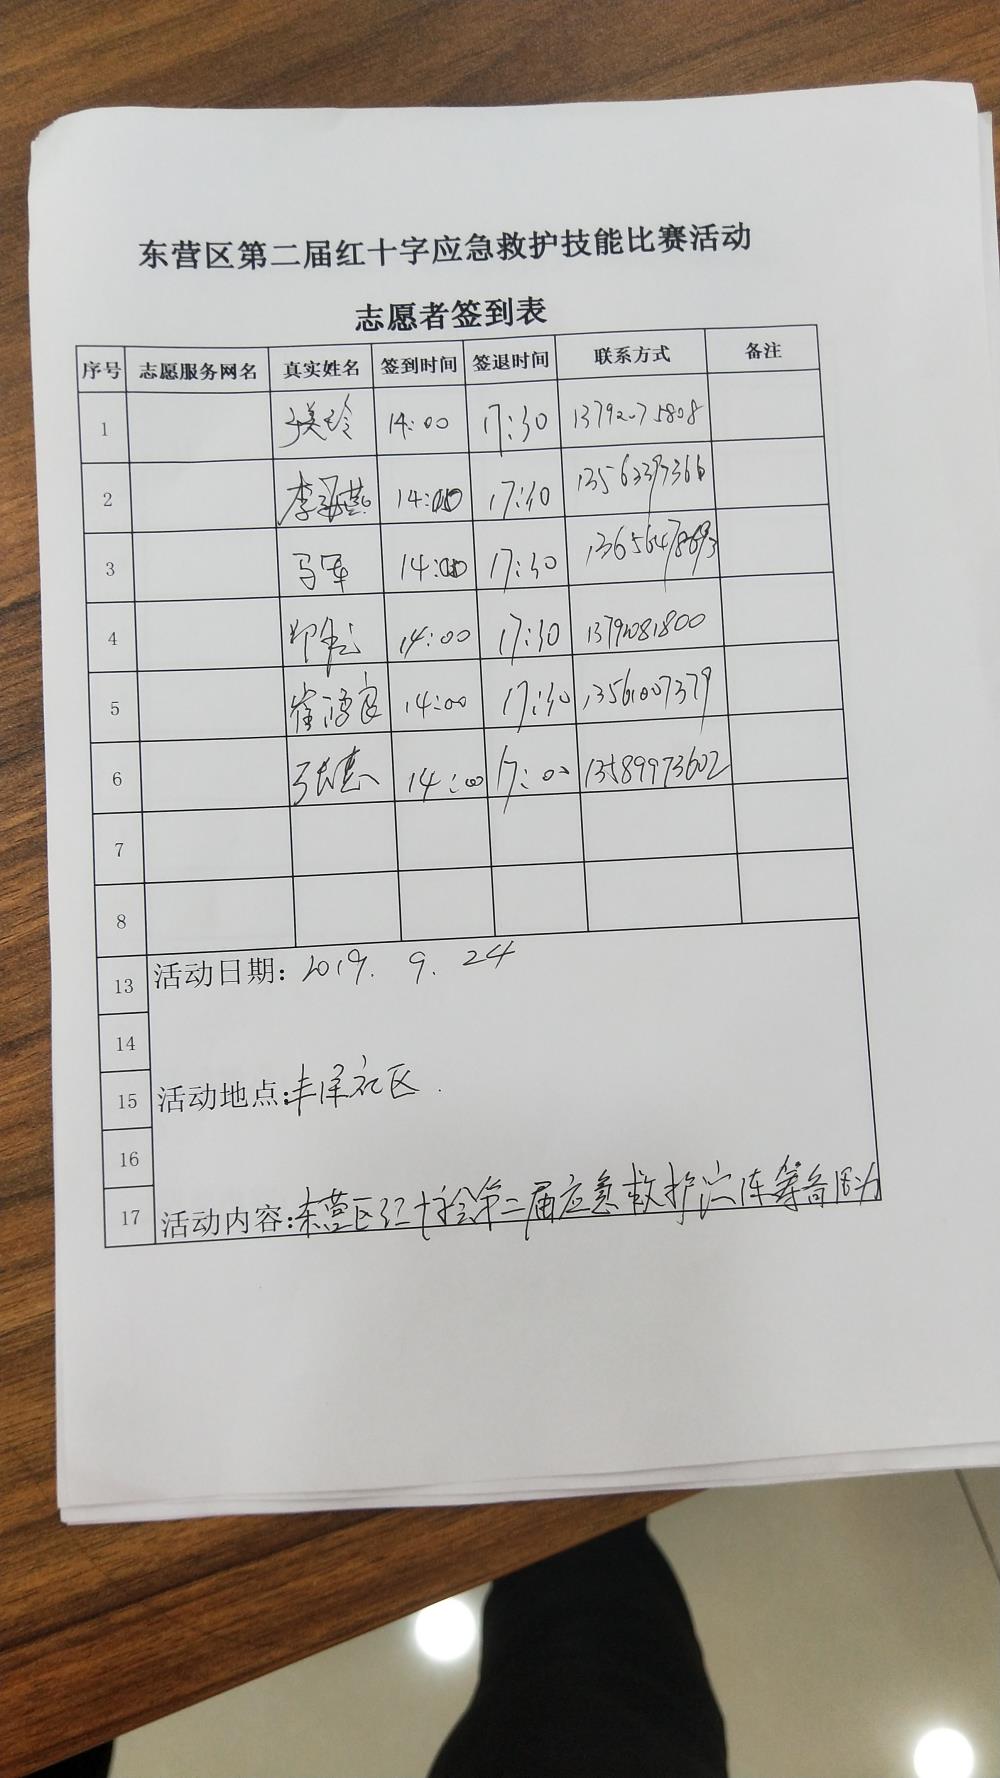 东营区第二届红十字应急救护技能比赛活动
志愿者签到表
序号 志愿服务网名 真实姓名 签到时间 签退时间 联系方式 备注
1 14:00 17:30 13792075808
2 李海燕 14:00 17:30 13563397366
3 马军 14:00 17:30
4 14:00 17:30 13792081800
5 14:00 17:30 13561007379
6 张惠 14:00 17:00 13589973602
7
8
13 活动日期: 2019. 9. 24
14
15 活动地点: 丰泽社区.
16
17 活动内容: 东营区红十字会第二届应急救护